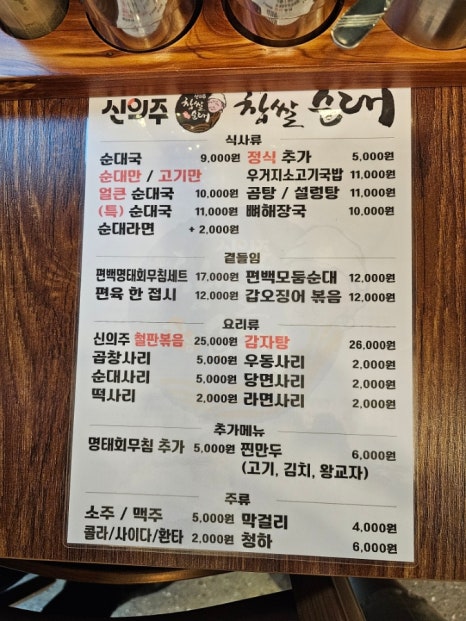 신의주 찹쌀순대 찹쌀 순대
식사류
순대국 9,000원 정식 추가 5,000원
순대만 / 고기만 우거지소고기국밥 11,000원
얼큰 순대국 10,000원 곰탕 / 설렁탕 11,000원
(특) 순대국 11,000원 뼈해장국 10,000원
순대라면 + 2,000원
곁들임
편백명태회무침세트 17,000원 편백모둠순대 12,000원
편육 한 접시 12,000원 갑오징어 볶음 12,000원
요리류
신의주 철판볶음 25,000원 감자탕 26,000원
곱창사리 5,000원 우동사리 2,000원
순대사리 5,000원 당면사리 2,000원
떡사리 2,000원 라면사리 2,000원
추가메뉴
명태회무침 추가 5,000원 찐만두 6,000원
(고기, 김치, 왕교자)
주류
소주 / 맥주 5,000원 막걸리 4,000원
콜라/사이다/환타 2,000원 청하 6,000원